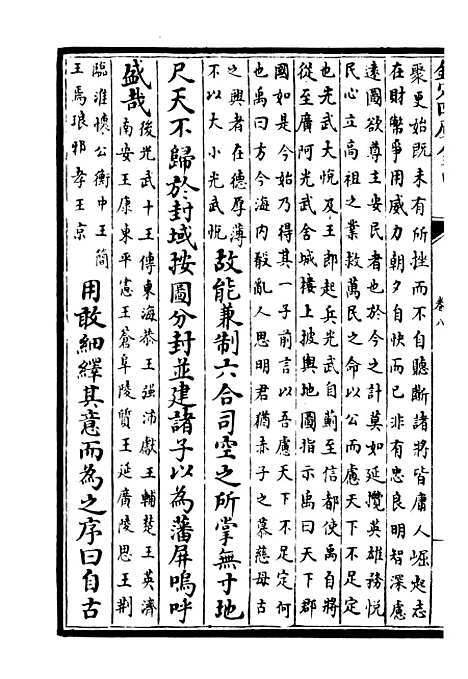 欽定四庫全書
卷八
聚更始既未有所挫而不自聽斷諸將皆庸人崛起志
在財幣爭用威力朝夕自快而已非有忠良明智深慮
遠圖欲尊主安民者也於今之計莫如延攬英雄務悅
民心立高祖之業救萬民之命以公而慮天下不足定
也光武大悅及王郎起兵光武自薊至信都使禹自將
從至廣阿光武舍城樓上披輿地圖指示禹曰天下郡
國如是今始乃得其一子前言以吾慮天下不足定何
也禹曰方今海内殽亂人思明君猶赤子之慕慈母古
之興者在德厚薄
不以大小光武悅
故能兼制六合司空之所掌無寸地
尺天不歸於封域按圖分封並建諸子以為藩屏嗚呼
盛哉
後光武十王傳東海恭王强沛獻王輔楚王英濟
南安王康東平憲王蒼阜陵質王延廣陵思王荆
臨淮懷公衡中王簡
王焉琅邪孝王京
用敢細繹其意而為之序曰自古